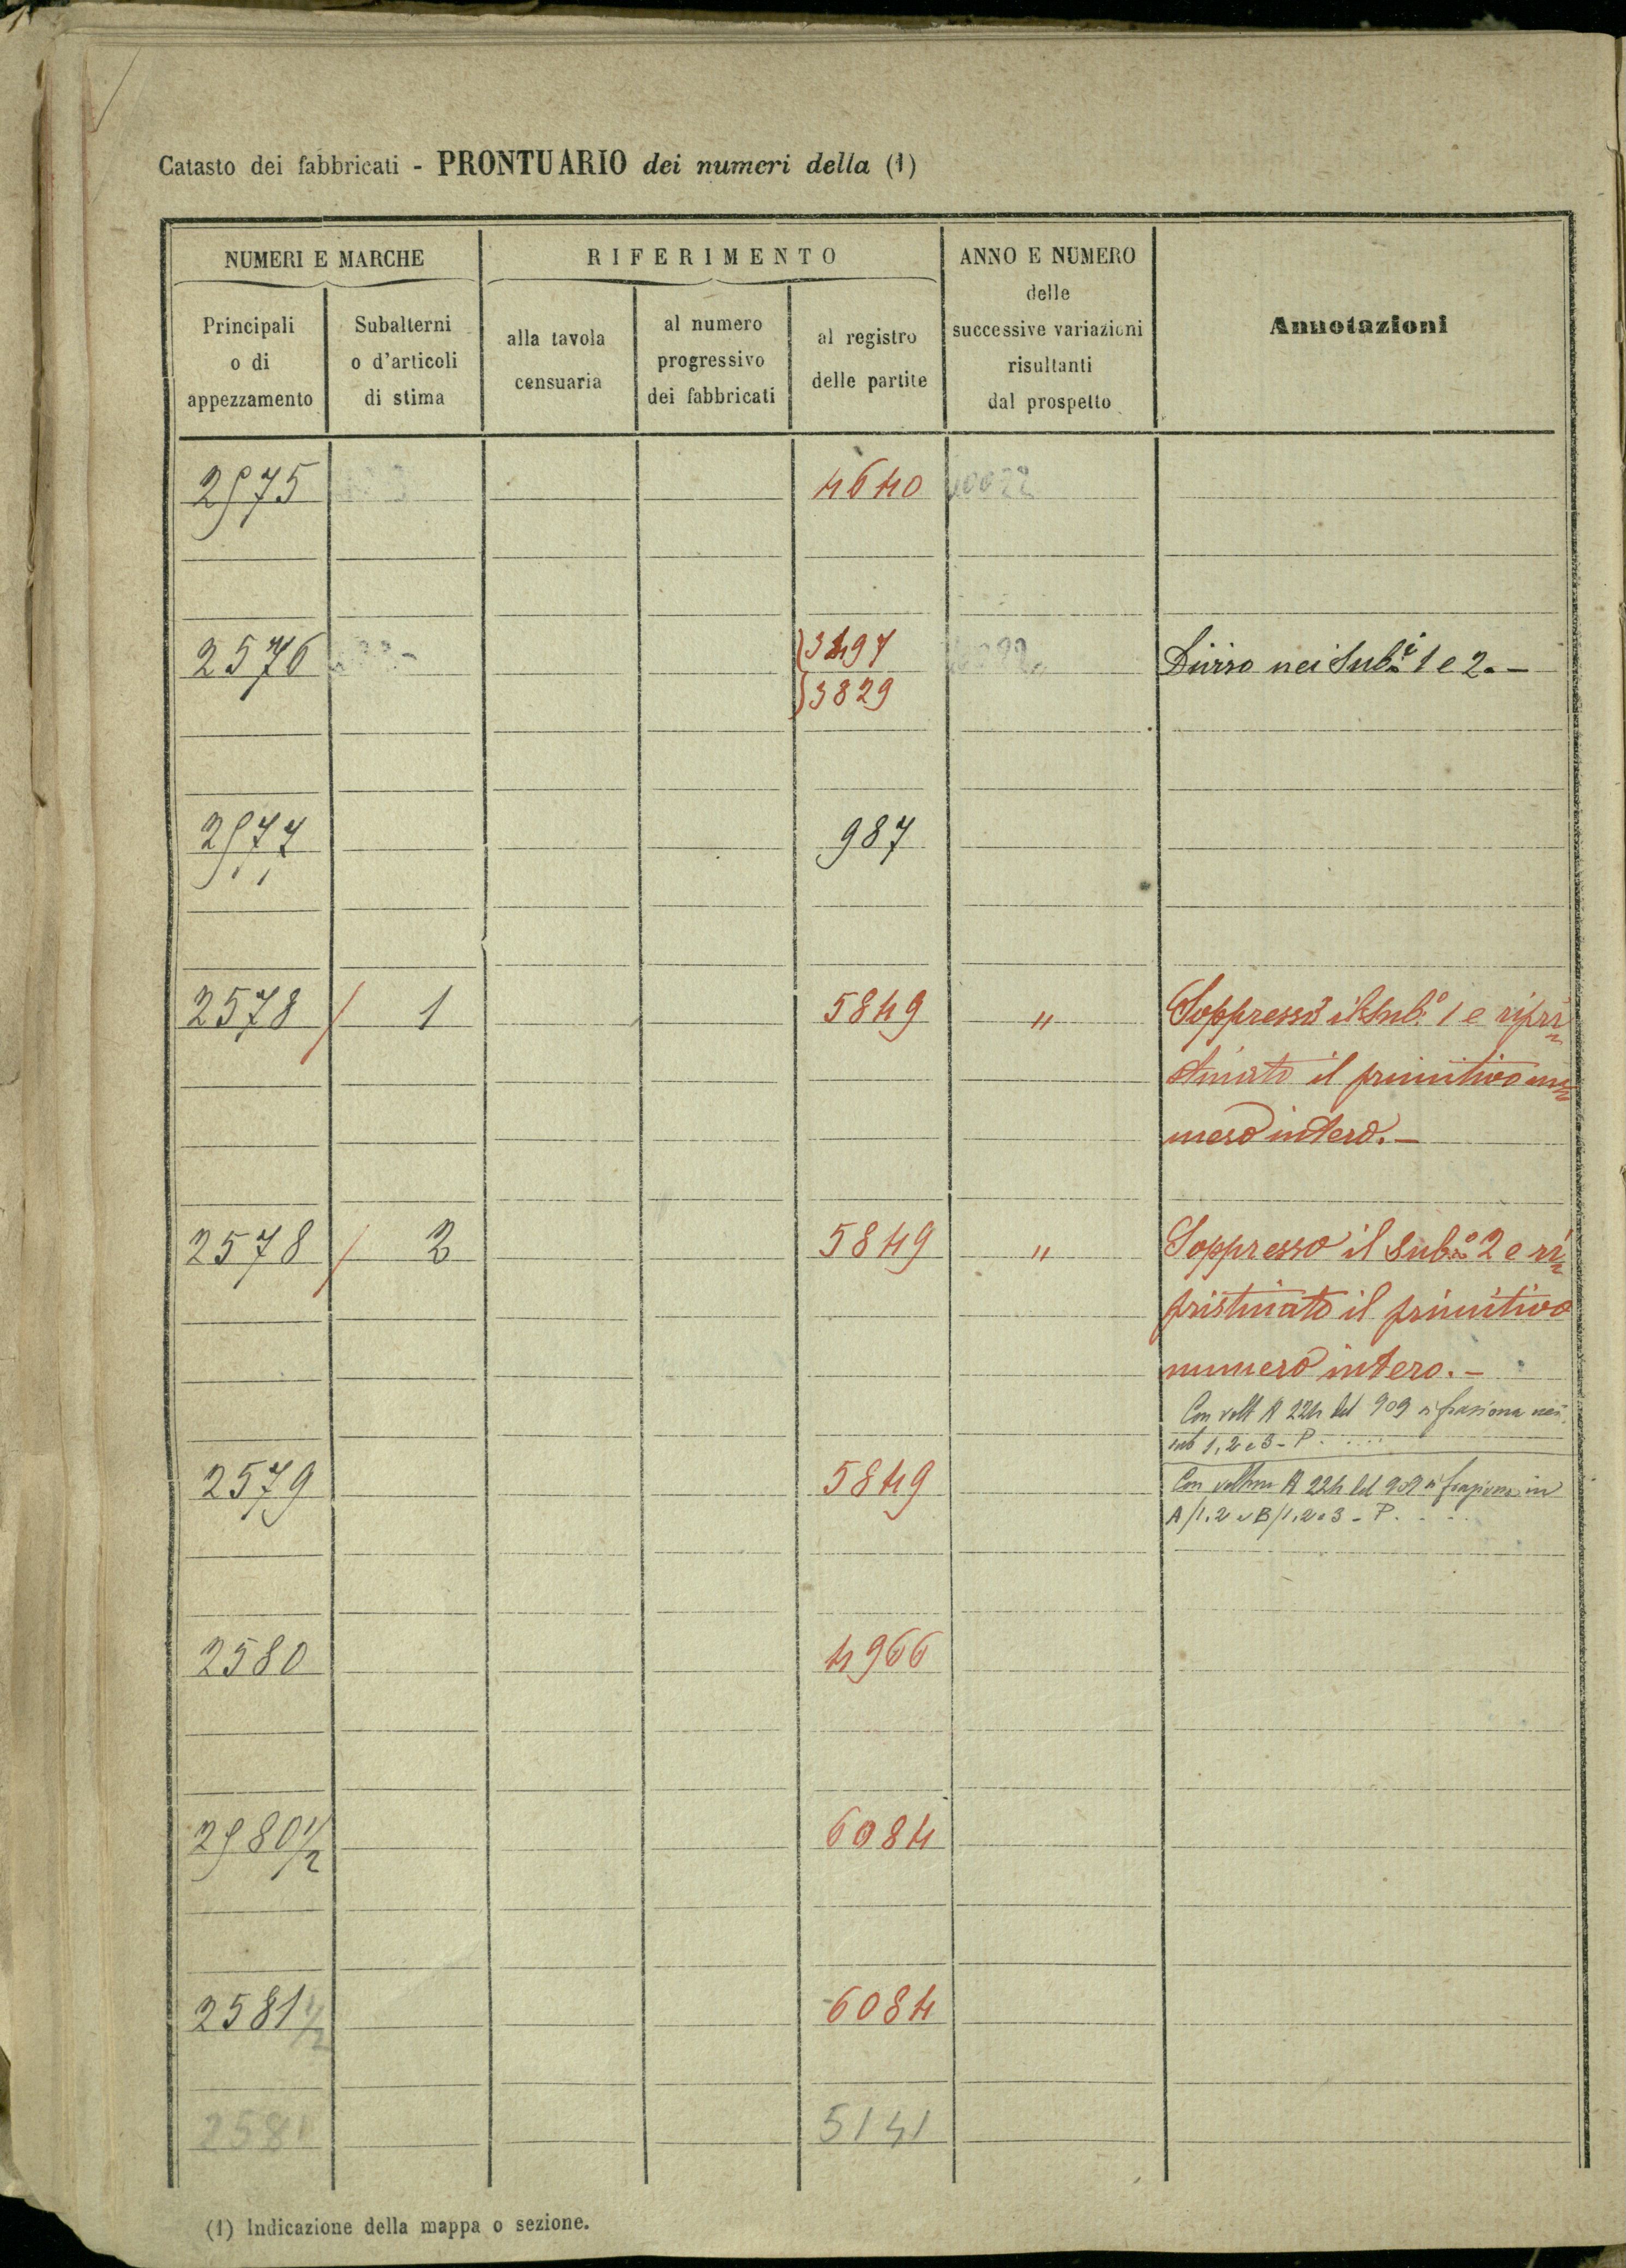 Catasto dei fabbricati - PRONTUARIO dei numeri della (1)
NUMERI E MARCHE
RIFERIMENTO
ANNO E NUMERO
delle
successive variazioni
risultanti
dal prospetto
Annotazioni
Principali
o di
appezzamento
Subalterni
o d'articoli
di stima
alla tavola
censuaria
al numero
progressivo
dei fabbricati
al registro
delle partite
2575 4640
2576 3497 Diviso nei Sub.i 1 e 2. -
3829
2577 987
2578 / 1 5849 " Soppresso il Sub.o 1 e ripri
stinato il primitivo nu
mero intero. -
2578 / 2 5849 " Soppresso il Sub.o 2 e ri
pristinato il primitivo
numero intero. -
Con volt A 224 del 909 si fraziona nei
sub 1, 2 e 3 - P.
2579 5849 Con voltura A 224 del 909 si fraziona in
A/1.2 e B/1.2 e 3 - P.
2580 4966
2580 1/2 6084
2581 1/2 6084
2581 5141
(1) Indicazione della mappa o sezione.